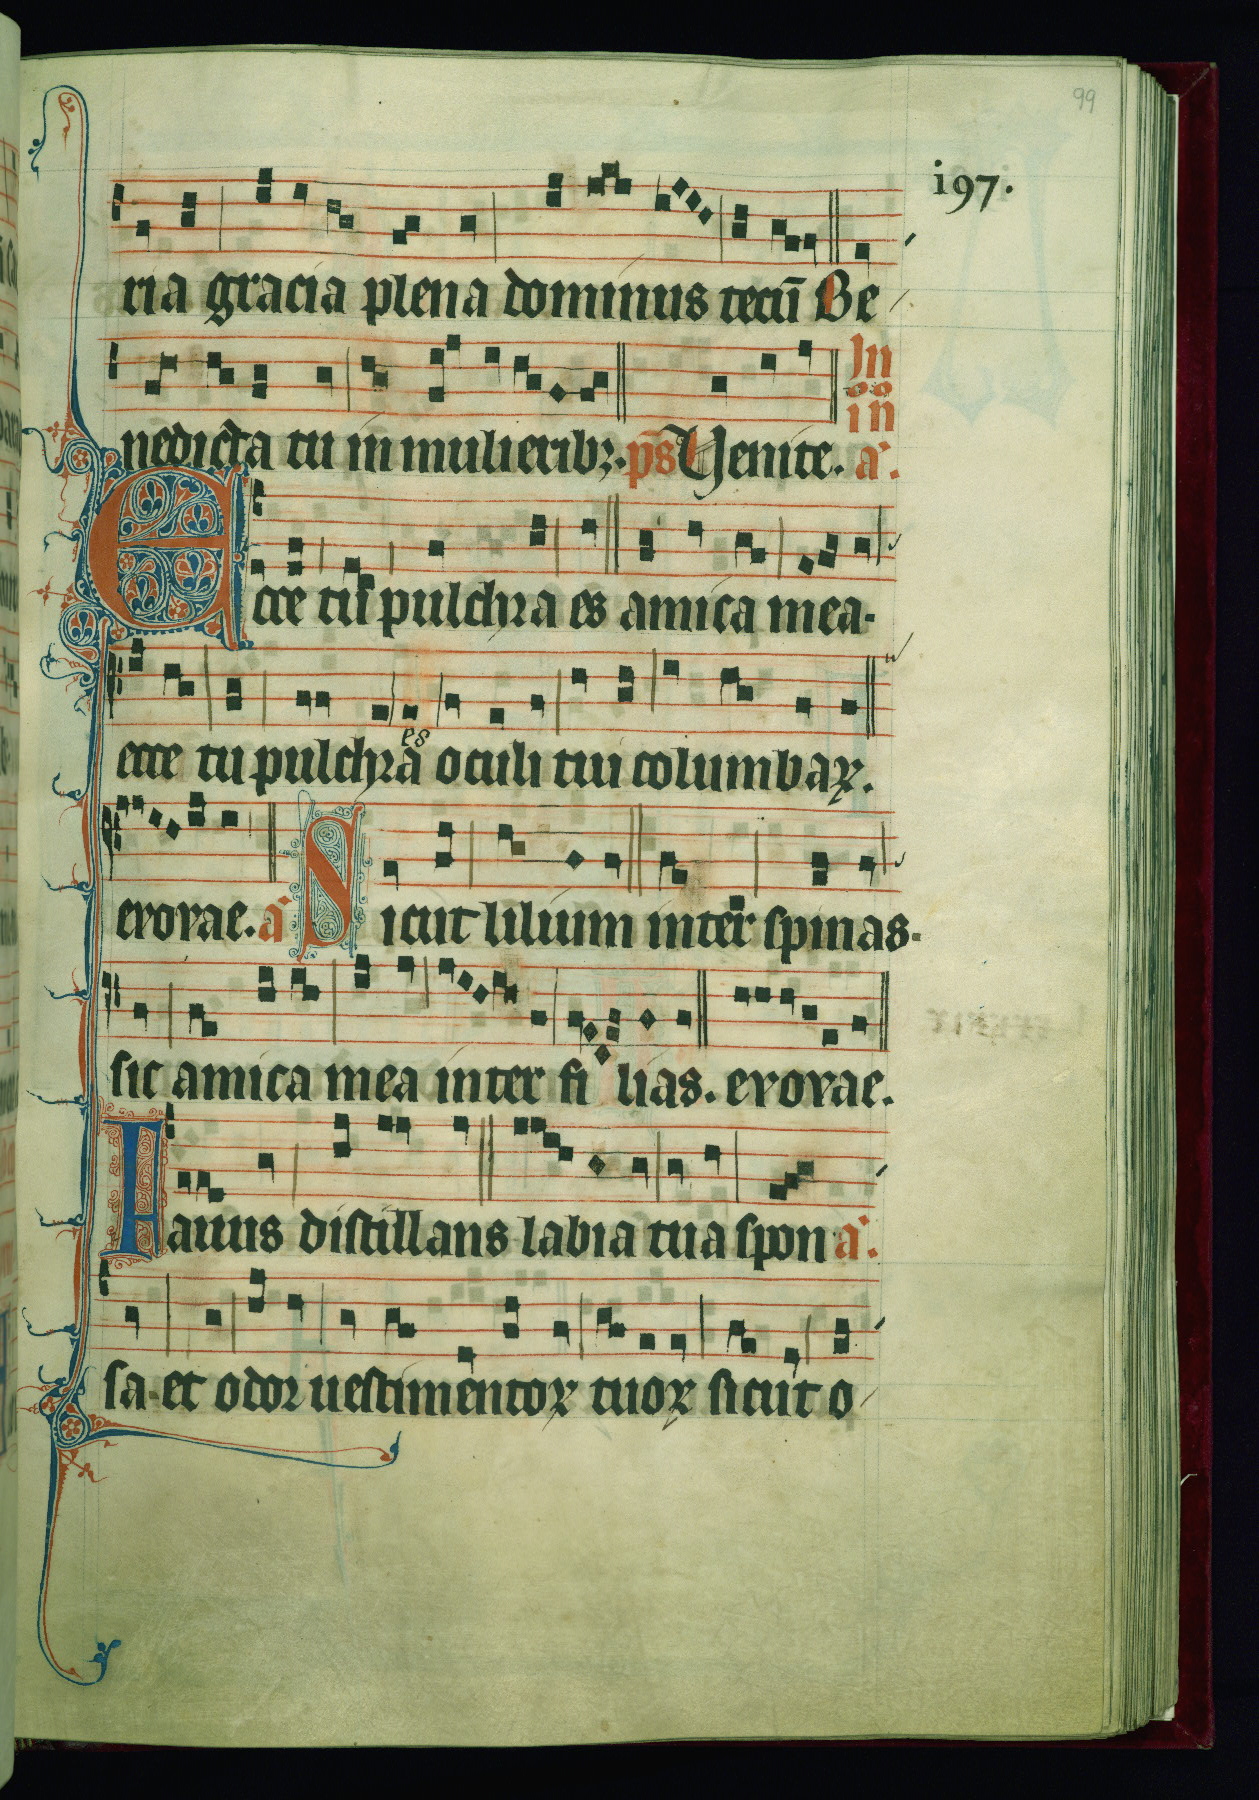 99
i97.
ria gracia plena dominus tecū Be
In
oo
in
nedicta tu in mulieribꝫ. ps̄ Venite. a.
Ecce tu pulchra es amica mea.
ecce tu pulchra es oculi tui columbaꝝ.
evovae. a Sicut lilium inter spinas.
sic amica mea inter fi lias. evovae.
Fauus distillans labia tua spon a.
sa et odor uestimentoꝝ tuoꝝ sicut o